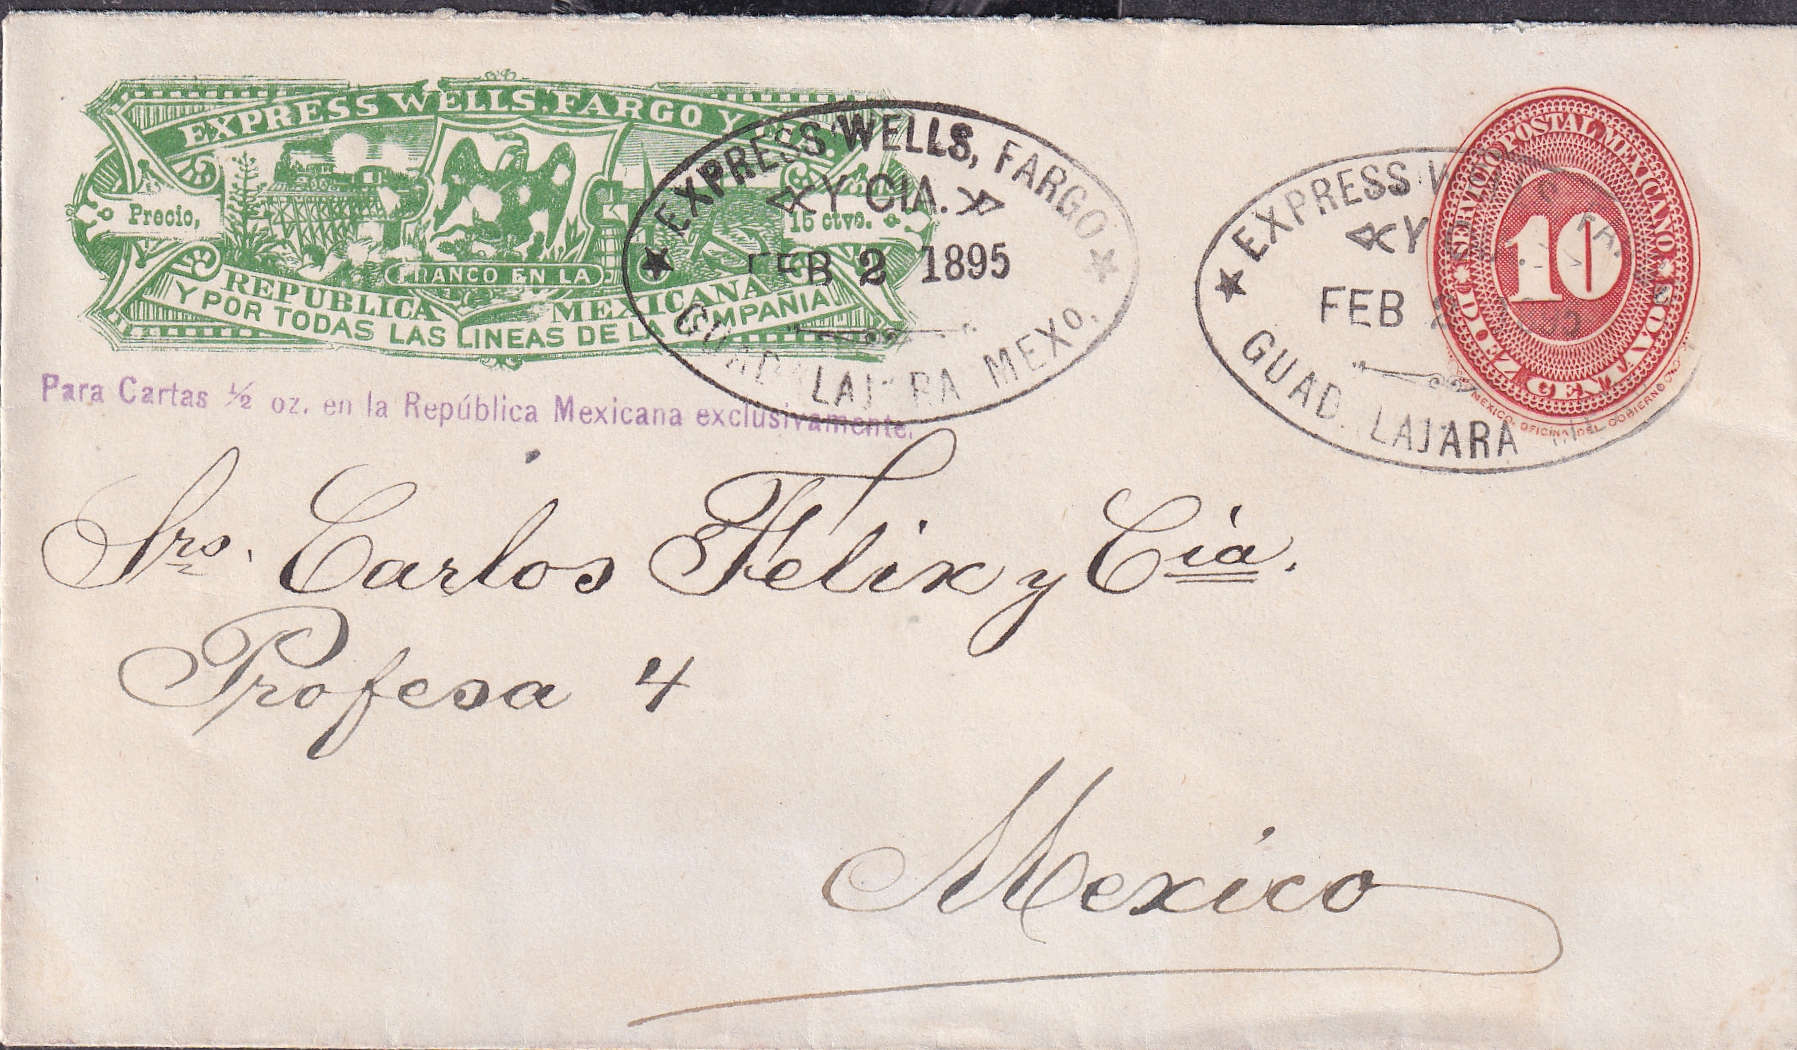 EXPRESS WELLS, FARGO Y CIA.
Precio,
15 ctvs.
FRANCO EN LA
REPUBLICA MEXICANA
Y POR TODAS LAS LINEAS DE LA COMPAÑIA
Para Cartas ½ oz. en la República Mexicana exclusivamente.
EXPRESS WELLS, FARGO
Y CIA.
FEB 2 1895
GUADALAJARA MEXO.
EXPRESS WELLS, FARGO
Y
FEB 2
GUADALAJARA
SERVICIO POSTAL MEXICANO
10
DIEZ CENTAVOS
MEXICO, OFICINA DEL GOBIERNO
Srs. Carlos Félix y Cía.
Profesa 4
Mexico